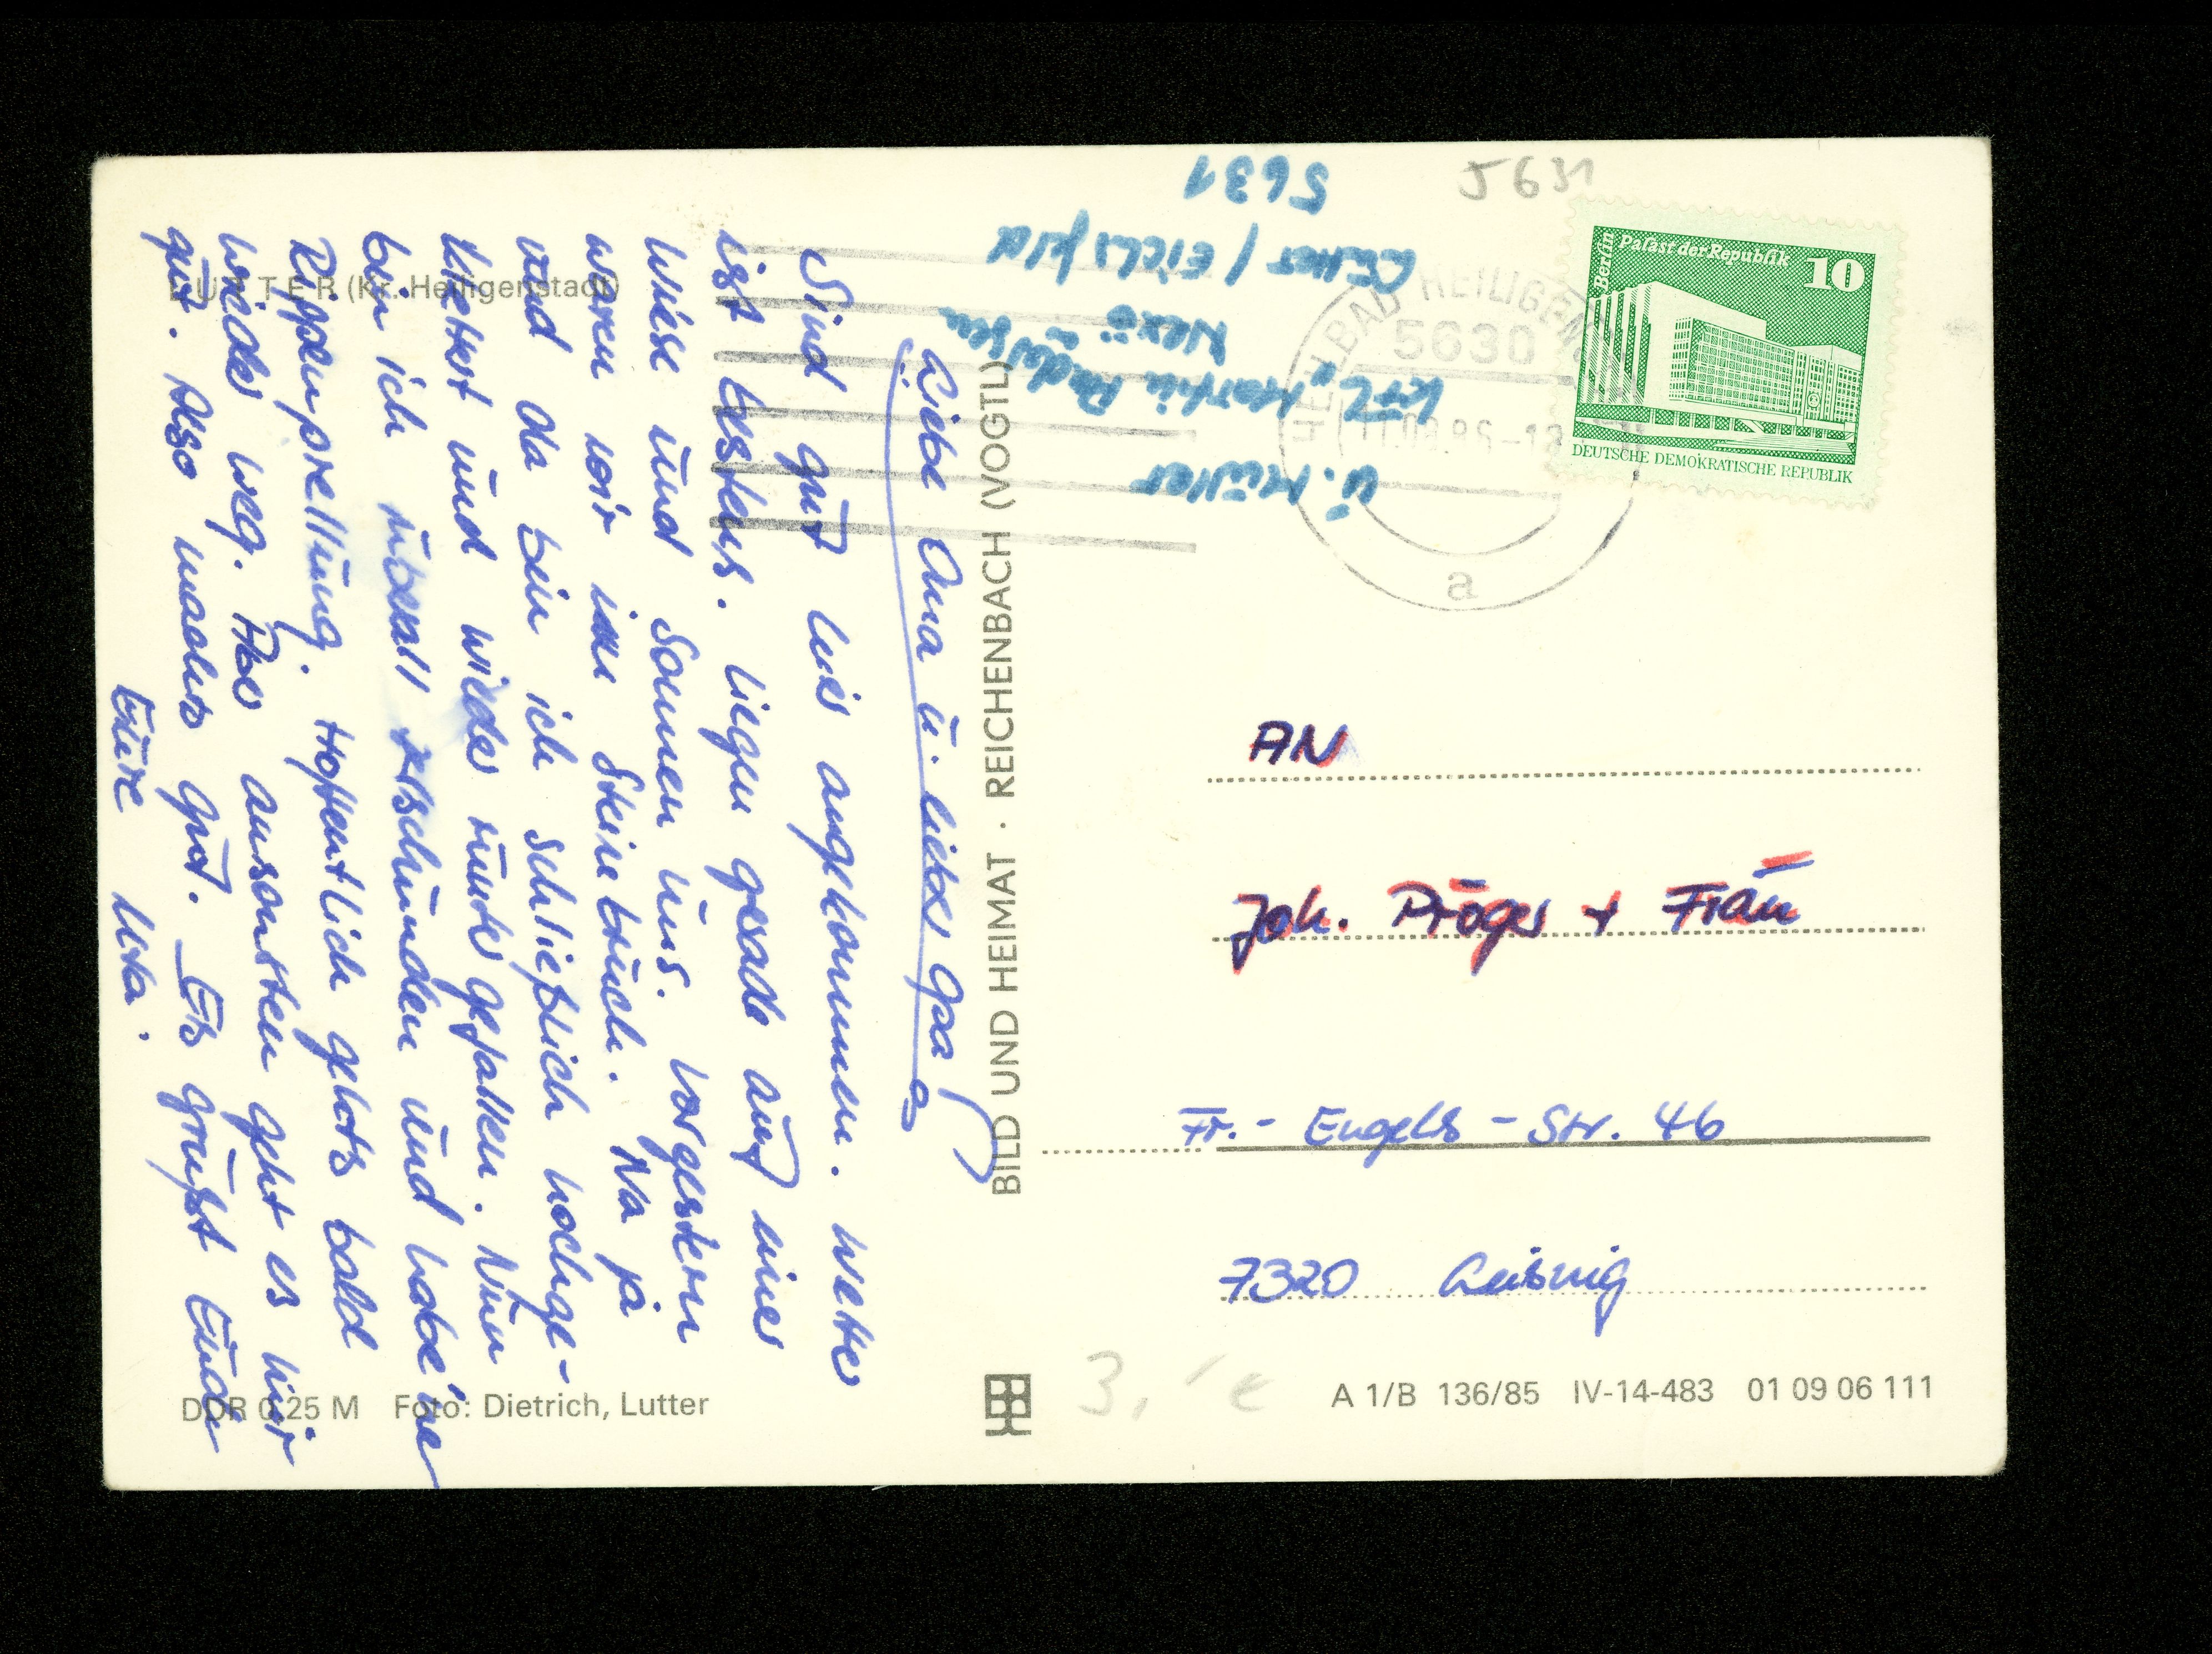 Liebe Oma u. lieber Opa!
Sind gut hier angekommen. Wetter
ist bestens. Liegen gerade auf einer
Wiese und Sonnen uns. Vorgestern
waren wir im Steinbruch. Na ja
und da bin ich schließlich hochge-
klettert und wieder runter gefallen. Nun
bin ich überall zerschunden und habe 'ne
Rippenprellung. Hoffentlich gehts bald
wieder weg. Aber ansonsten geht es hier
gut. Also machts gut. Es grüßt Euch
Eure Uta.
LUTTER (Kr. Heiligenstadt)
DDR 0,25 M Foto: Dietrich, Lutter
BILD UND HEIMAT · REICHENBACH (VOGTL)
U. Müller
Martin Andersen
Nexö
Lutter / Eichsfeld
5631
5631
HEILBAD HEILIGEN
5630
a
Berlin
Palast der Republik
10
DEUTSCHE DEMOKRATISCHE REPUBLIK
AN
Joh. Pröger + Frau
Fr. - Engels - Str. 46
7320 Leisnig
3,- €
A 1/B 136/85 IV-14-483 01 09 06 111